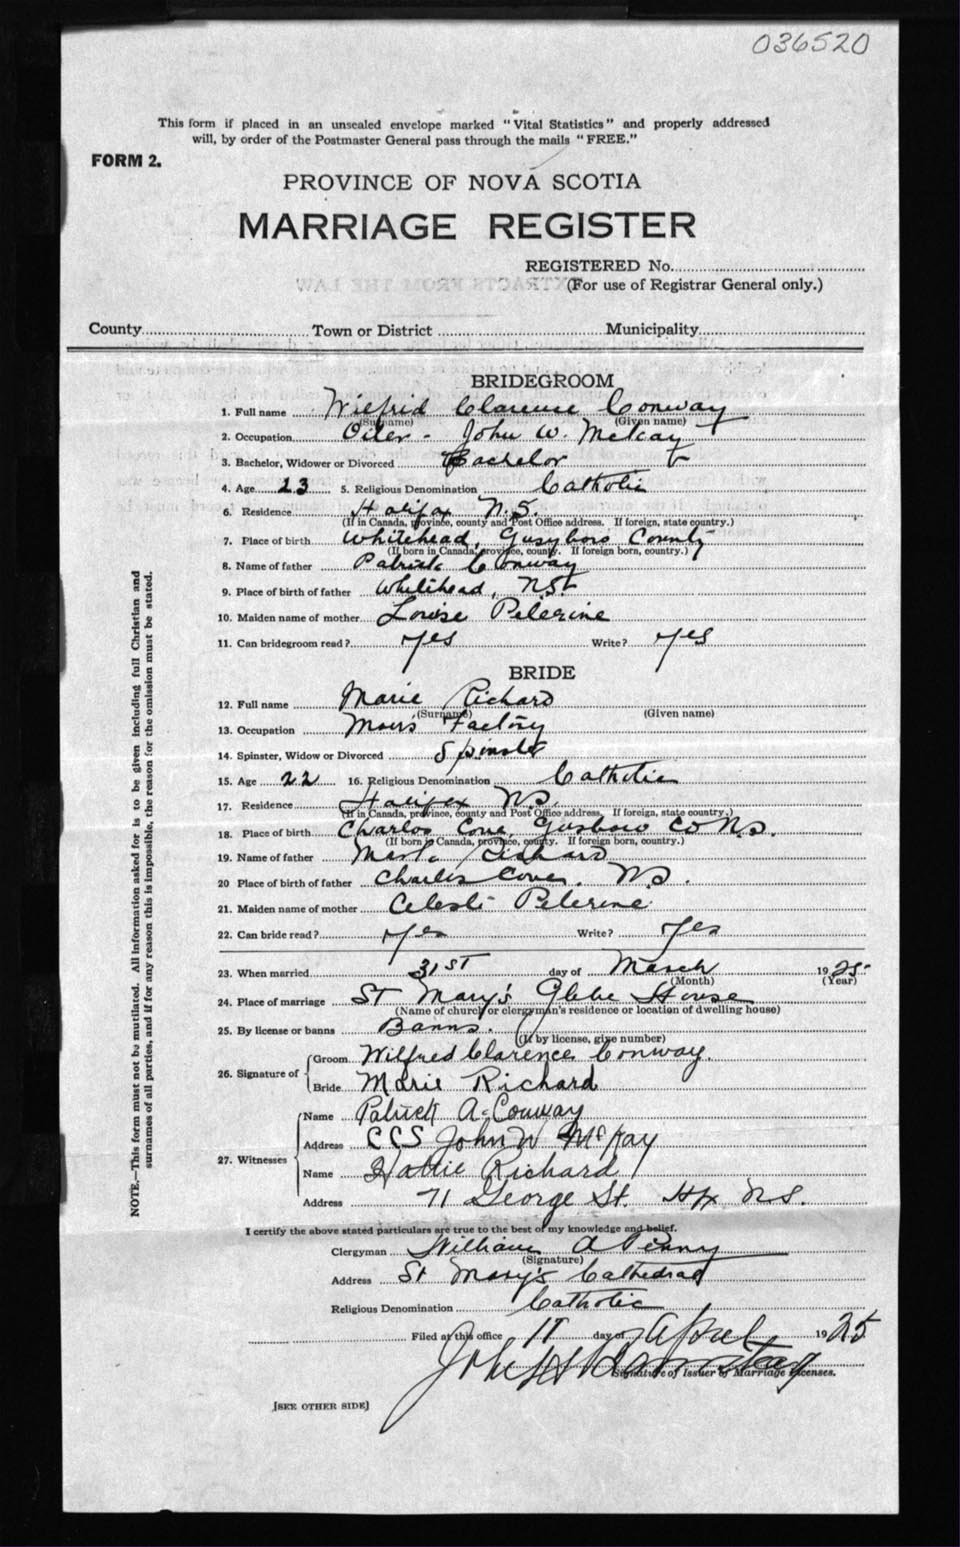 036520
This form if placed in an unsealed envelope marked "Vital Statistics" and properly addressed
will, by order of the Postmaster General pass through the mails "FREE."
FORM 2.
PROVINCE OF NOVA SCOTIA
MARRIAGE REGISTER
REGISTERED No.
(For use of Registrar General only.)
EXTRACTS FROM THE LAW
County Town or District Municipality
BRIDEGROOM
1. Full name Wilfrid Clarence Conway
(Surname) (Given name)
2. Occupation Oiler - John W. McKay
3. Bachelor, Widower or Divorced Bachelor
4. Age 23 5. Religious Denomination Catholic
6. Residence Halifax N.S.
(If in Canada, province, county and Post Office address. If foreign, state country.)
7. Place of birth Whitehead, Gusyboro County
(If born in Canada, province, county. If foreign born, country.)
8. Name of father Patrick Conway
9. Place of birth of father Whitehead, NS
10. Maiden name of mother Louise Pelerine
11. Can bridegroom read? Yes Write? Yes
BRIDE
12. Full name Marie Richard
(Surname) (Given name)
13. Occupation Moirs Factory
14. Spinster, Widow or Divorced Spinster
15. Age 22 16. Religious Denomination Catholic
17. Residence Halifax NS.
(If in Canada, province, county and Post Office address. If foreign, state country.)
18. Place of birth Charlos Cove, Gusboro Co NS.
(If born in Canada, province, county. If foreign born, country.)
19. Name of father Richard
20 Place of birth of father Charles Cove, NS.
21. Maiden name of mother Celesti Pelerine
22. Can bride read? Yes Write? Yes
23. When married 31ST day of March 1925
(Month) (Year)
24. Place of marriage St Mary's Glebe House
(Name of church or clergyman's residence or location of dwelling house)
25. By license or banns Banns.
(If by license, give number)
26. Signature of Groom Wilfred Clarence Conway.
Bride Marie Richard
27. Witnesses Name Patrick A Conway
Address CCS John W McKay
Name Hattie Richard
Address 71 George St. Hfx N.S.
I certify the above stated particulars are true to the best of my knowledge and belief.
Clergyman William A Penny
(Signature)
Address St Mary's Cathedral
Religious Denomination Catholic
Filed at this office day of April 1925
Signature of Issuer of Marriage Licenses.
[SEE OTHER SIDE]
NOTE.—This form must not be mutilated. All information asked for is to be given including full Christian and
surnames of all parties, and if for any reason this is impossible, the reason for the omission must be stated.